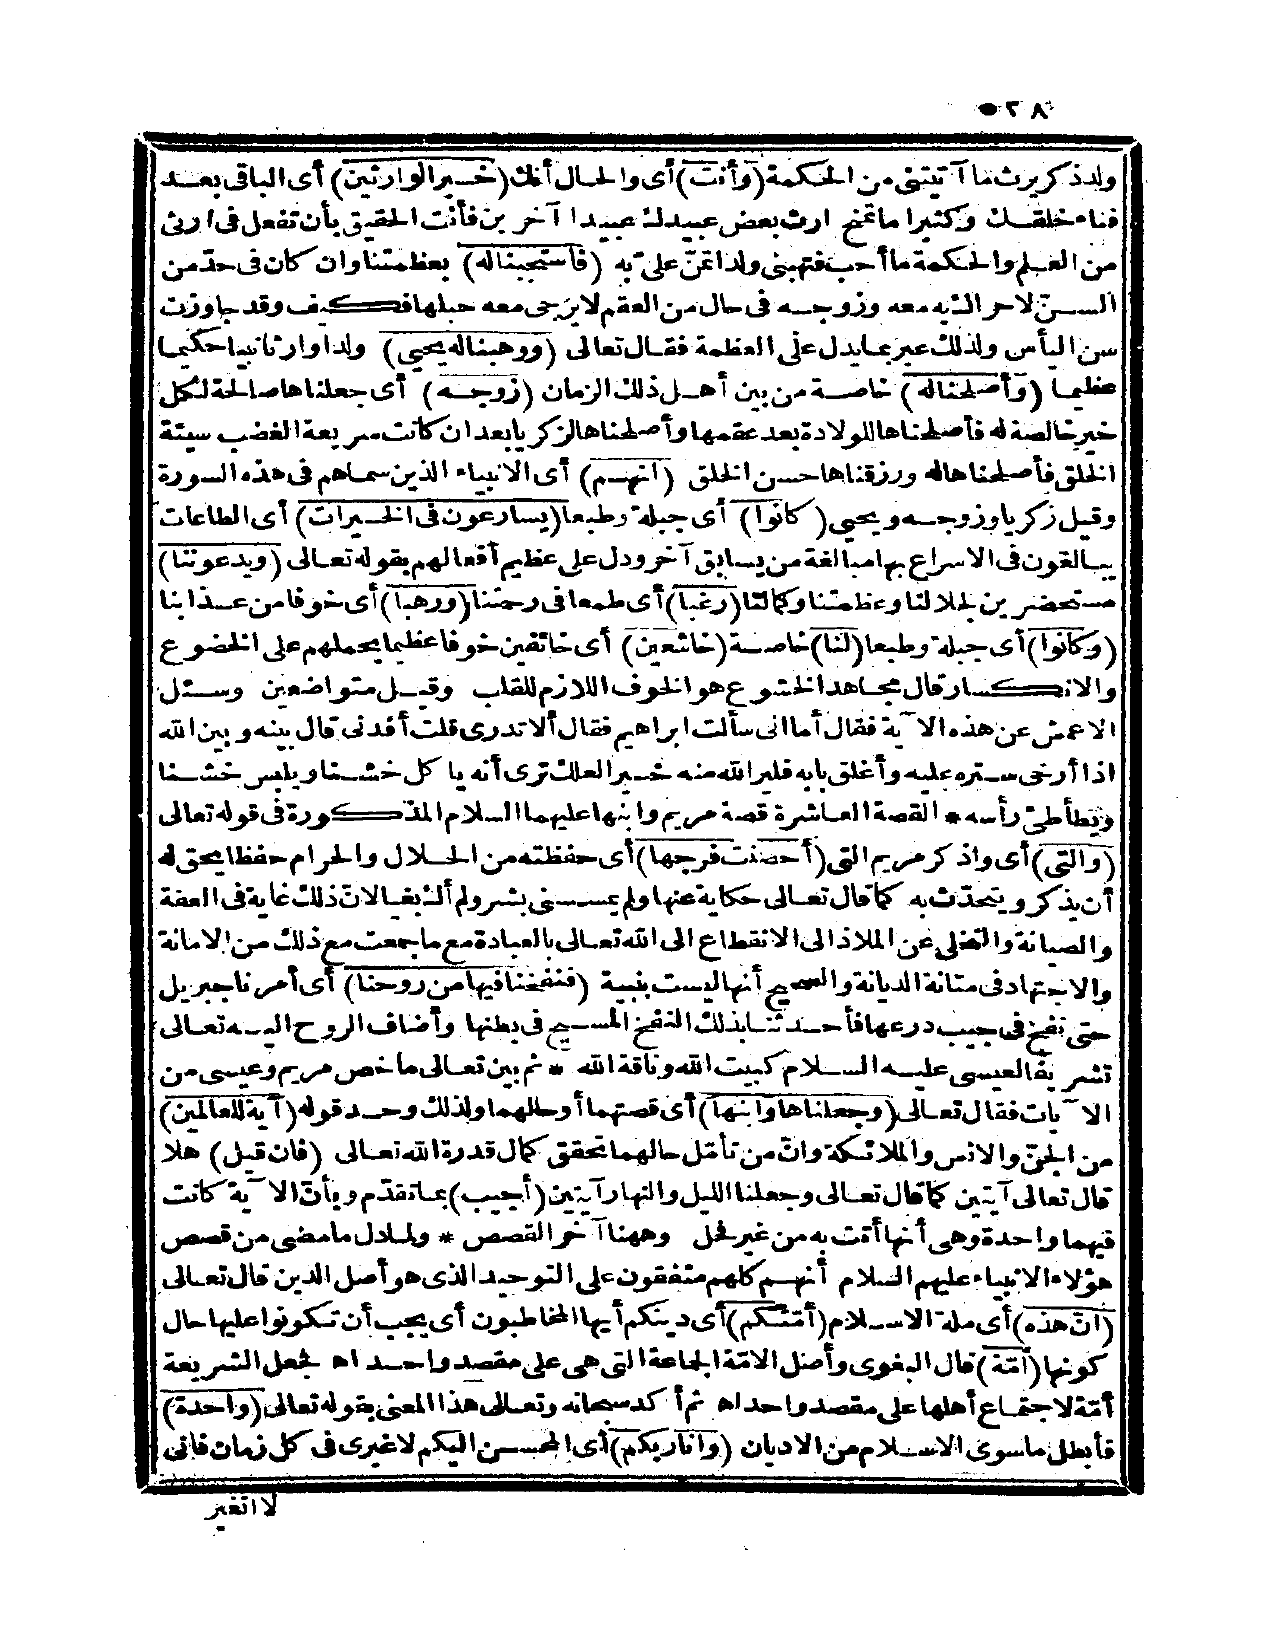 ٥٢٨
ولد ذكر يرث ما آتيتنى من الحكمة (وأنت) أى والحال أنك (خير الوارثين) أى الباقى بعد
فناء خلقك وكثيرا ما تمنح ارث بعض عبيدك عبيدا آخرين فأنت الحقيق بأن تفعل فى ارثى
من العلم والحكمة ما أحب فتهبنى ولدا تمنّ علىّ به (فاستجبناله) بعظمتنا وان كان فى حدّ من
السنّ لا حراك به معه وزوجه فى حال من العقم لا يرجى معه حبلها فكيف وقد جاوزت
سن اليأس ولذلك عبر بما يدل على العظمة فقال تعالى (ووهبنا له يحيى) ولدا وارثا نبيا حكيما
عظيما (وأصلحناله) خاصة من بين أهل ذلك الزمان (زوجه) أى جعلناها صالحة لكل
خير خالصة له فأصلحناها للولادة بعد عقمها وأصلحناها لزكريا بعد ان كانت سريعة الغضب سيئة
الخلق فأصلحناها له ورزقناها حسن الخلق (انهم) أى الانبياء الذين سماهم فى هذه السورة
وقيل زكريا وزوجه ويحيى (كانوا) أى جبلة وطبعا (يسارعون فى الخيرات) أى الطاعات
يبالغون فى الاسراع بها مبالغة من يسابق آخر ودل على عظيم أفعالهم بقوله تعالى (ويدعوننا)
مستحضرين لجلالنا وعظمتنا وكمالنا (رغبا) أى طمعا فى رحمتنا (ورهبا) أى خوفا من عذابنا
(وكانوا) أى جبلة وطبعا (لنا) خاصة (خاشعين) أى خائفين خوفا عظيما يحملهم على الخضوع
والانكسار قال مجاهد الخشوع هو الخوف اللازم للقلب وقيل متواضعين وسئل
الاعمش عن هذه الآية فقال أما انى سألت ابراهيم فقال ألا تدرى قلت أفدنى قال بينه وبين الله
اذا أرخى ستره عليه وأغلق بابه فلير الله منه خيرا لعلك ترى أنه يا كل خشنا ويلبس خشنا
ويطأطئ رأسه * القصة العاشرة قصة مريم وابنها عليهما السلام المذكورة فى قوله تعالى
(والتى) أى واذكر مريم التى (أحصنت فرجها) أى حفظته من الحلال والحرام حفظا يحق له
أن يذكر ويتحدّث به كما قال تعالى حكاية عنها ولم يمسسنى بشر ولم ألـ بغيا لانّ ذلك غاية فى العفة
والصيانة والتخلى عن الملاذ الى الانقطاع الى الله تعالى بالعبادة مع ما جمعت مع ذلك من الامانة
والاجتهاد فى متانة الديانة والصحيح أنها ليست بنبية (فنفخنا فيها من روحنا) أى أمرنا جبريل
حتى نفخ فى جيب درعها فأحدثنا بذلك النفخ المسيح فى بطنها وأضاف الروح اليه تعالى
تشريفا لعيسى عليه السلام كبيت الله وناقة الله * ثم بين تعالى ما خص مريم وعيسى من
الآيات فقال تعالى (وجعلناها وابنها) أى قصتهما أو حالهما ولذلك وحد قوله (آية للعالمين)
من الجنّ والانس والملائكة وانّ من تأمّل حالهما تحقق كمال قدرة الله تعالى (فان قيل) هلا
قال تعالى آيتين كما قال تعالى وجعلنا الليل والنهار آيتين (أجيب) بما تقدّم وبأنّ الآية كانت
فيهما واحدة وهى أنها أتت به من غير فحل وههنا آخر القصص * ولما دل ما مضى من قصص
هؤلاء الانبياء عليهم السلام أنهم كلهم متفقون على التوحيد الذى هو أصل الدين قال تعالى
(انّ هذه) أى ملة الاسلام (أمّتكم) أى دينكم أيها المخاطبون أى يجب أن تكونوا عليها حال
كونها (أمّة) قال البغوى وأصل الامّة الجماعة التى هى على مقصد واحد اه فجعل الشريعة
أمّة لاجتماع أهلها على مقصد واحد اه ثم أكد سبحانه وتعالى هذا المعنى بقوله تعالى (واحدة)
فأبطل ما سوى الاسلام من الاديان (وأنا ربكم) أى المحسن اليكم لا غيرى فى كل زمان فانى
لا اتغير